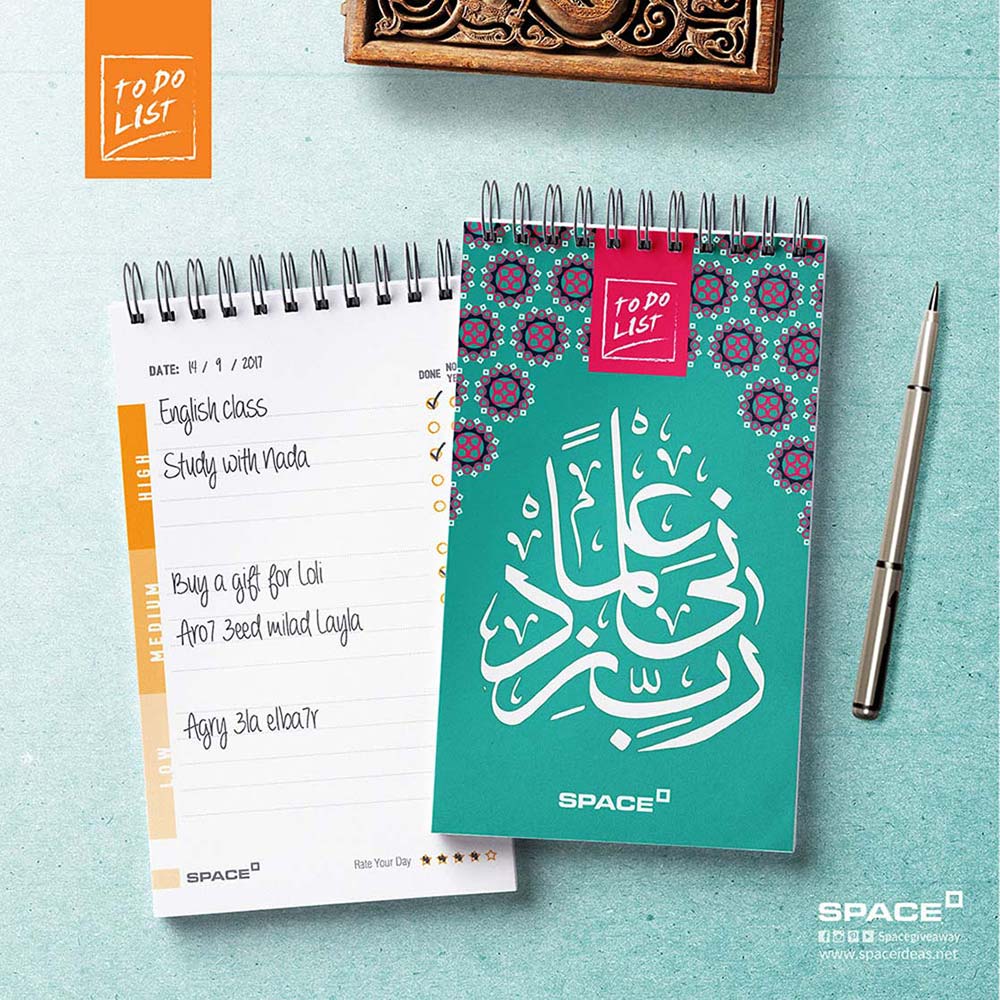 TO DO
LIST
DATE: 14 / 9 / 2017
DONE
English class
Study with Nada
HIGH
Buy a gift for Loli
Aro7 3eed milad Layla
MEDIUM
Agry 3la elba7r
LOW
Rate Your Day
SPACE
TO DO
LIST
رَبِّ زِدْنِي عِلْمًا
SPACE
SPACE
Spacegiveaway
www.spaceideas.net